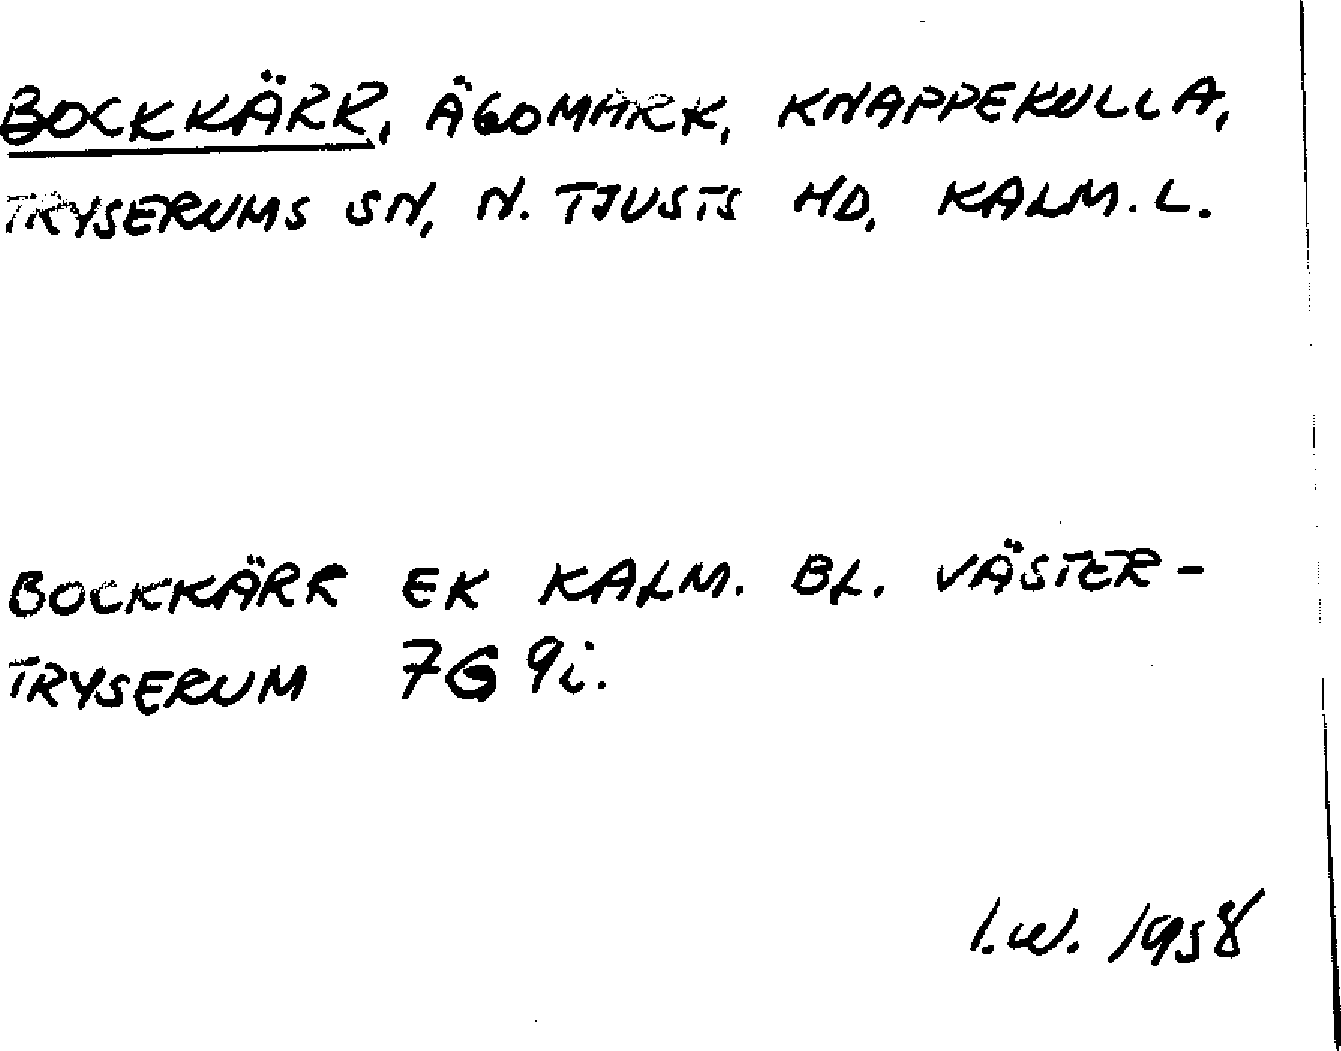 BOCKKÄRR, ÄGOMARK, KNAPPEKULLA,
TRYSERUMS SN, N. TJUSTS HD, KALM. L.
BOCKKÄRR EK KALM. BL. VÄSTER-
TRYSERUM 7G 9i.
I.W. 1958